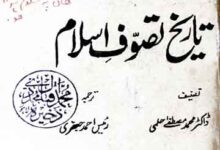 تاریخ تصوّفِ اسلام
تصنیف
ترجمہ
ڈاکٹر محمد مصطفےٰ حلمی
رئیس احمد جعفری